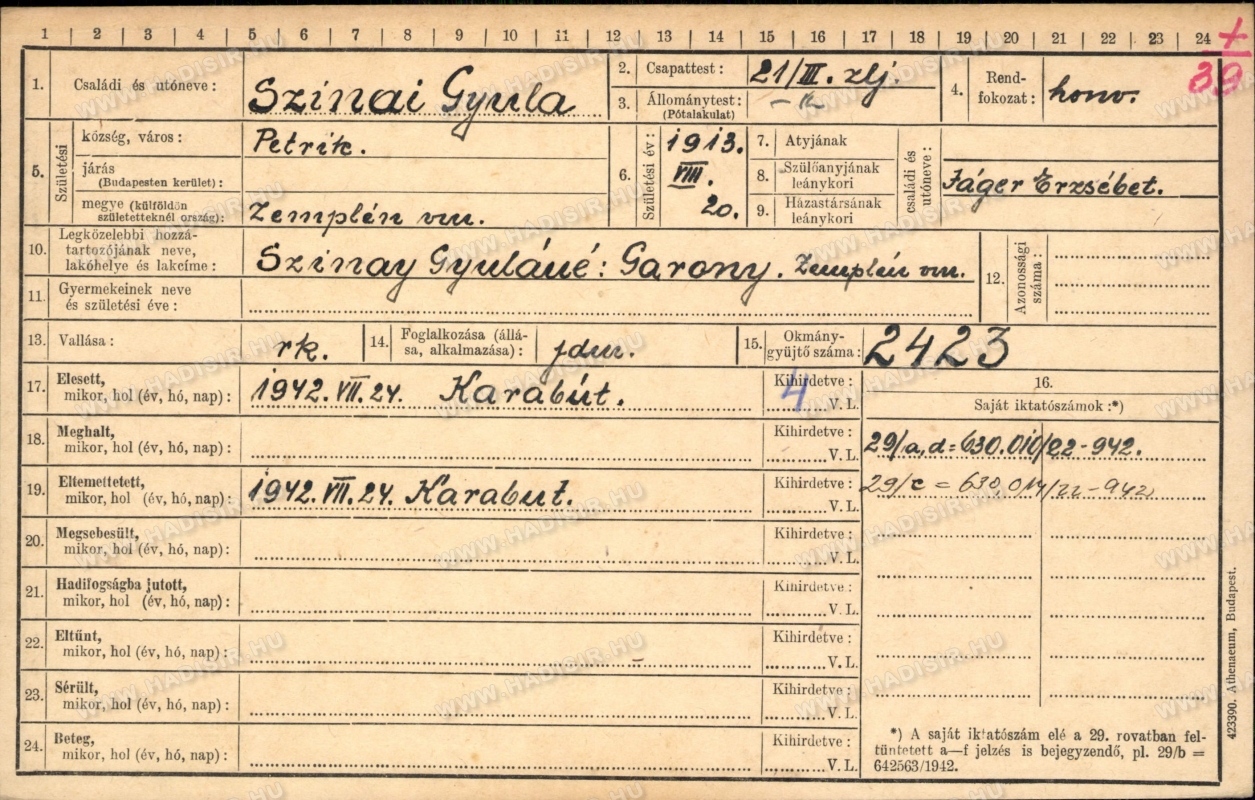 1 | 2 | 3 | 4 | 5 | 6 | 7 | 8 | 9 | 10 | 11 | 12 | 13 | 14 | 15 | 16 | 17 | 18 | 19 | 20 | 21 | 22 | 23 | 24
39
1. Családi és utóneve : Szinai Gyula
2. Csapattest : 21/III. zlj.
3. Állománytest : (Pótalakulat)
4. Rendfokozat: honv.
5. Születési
község, város : Petrik.
járás (Budapesten kerület) :
megye (külföldön születetteknél ország): Zemplén vm.
6. Születési év : 1913. VIII. 20.
7. Atyjának
8. Szülőanyjának leánykori
9. Házastársának leánykori
családi és utóneve :
Jáger Erzsébet.
10. Legközelebbi hozzátartozójának neve, lakóhelye és lakcíme : Szinay Gyuláné: Garany. Zemplén vm.
11. Gyermekeinek neve és születési éve :
12. Azonossági száma :
13. Vallása : rk.
14. Foglalkozása (állása, alkalmazása) :
15. Okmánygyüjtő száma : 2423
16.
Saját iktatószámok :*)
29/a,d=630.010/22-942.
29/c = 630.014/22-942
17. Elesett, mikor, hol (év, hó, nap) : 1942. VII. 24. Karabút.
Kihirdetve : 4 V. L.
18. Meghalt, mikor, hol (év, hó, nap) :
Kihirdetve : V. L.
19. Eltemettetett, mikor, hol (év, hó, nap) : 1942. VII. 24. Karabut.
Kihirdetve : V. L.
20. Megsebesült, mikor, hol (év, hó, nap) :
Kihirdetve : V. L.
21. Hadifogságba jutott, mikor, hol (év, hó, nap) :
Kihirdetve : V. L.
22. Eltűnt, mikor, hol (év, hó, nap) :
Kihirdetve : V. L.
23. Sérült, mikor, hol (év, hó, nap) :
Kihirdetve : V. L.
24. Beteg, mikor, hol (év, hó, nap) :
Kihirdetve : V. L.
*) A saját iktatószám elé a 29. rovatban feltüntetett a—f jelzés is bejegyzendő, pl. 29/b = 642563/1942.
423390. Athenaeum, Budapest.
WWW.HADISIR.HU